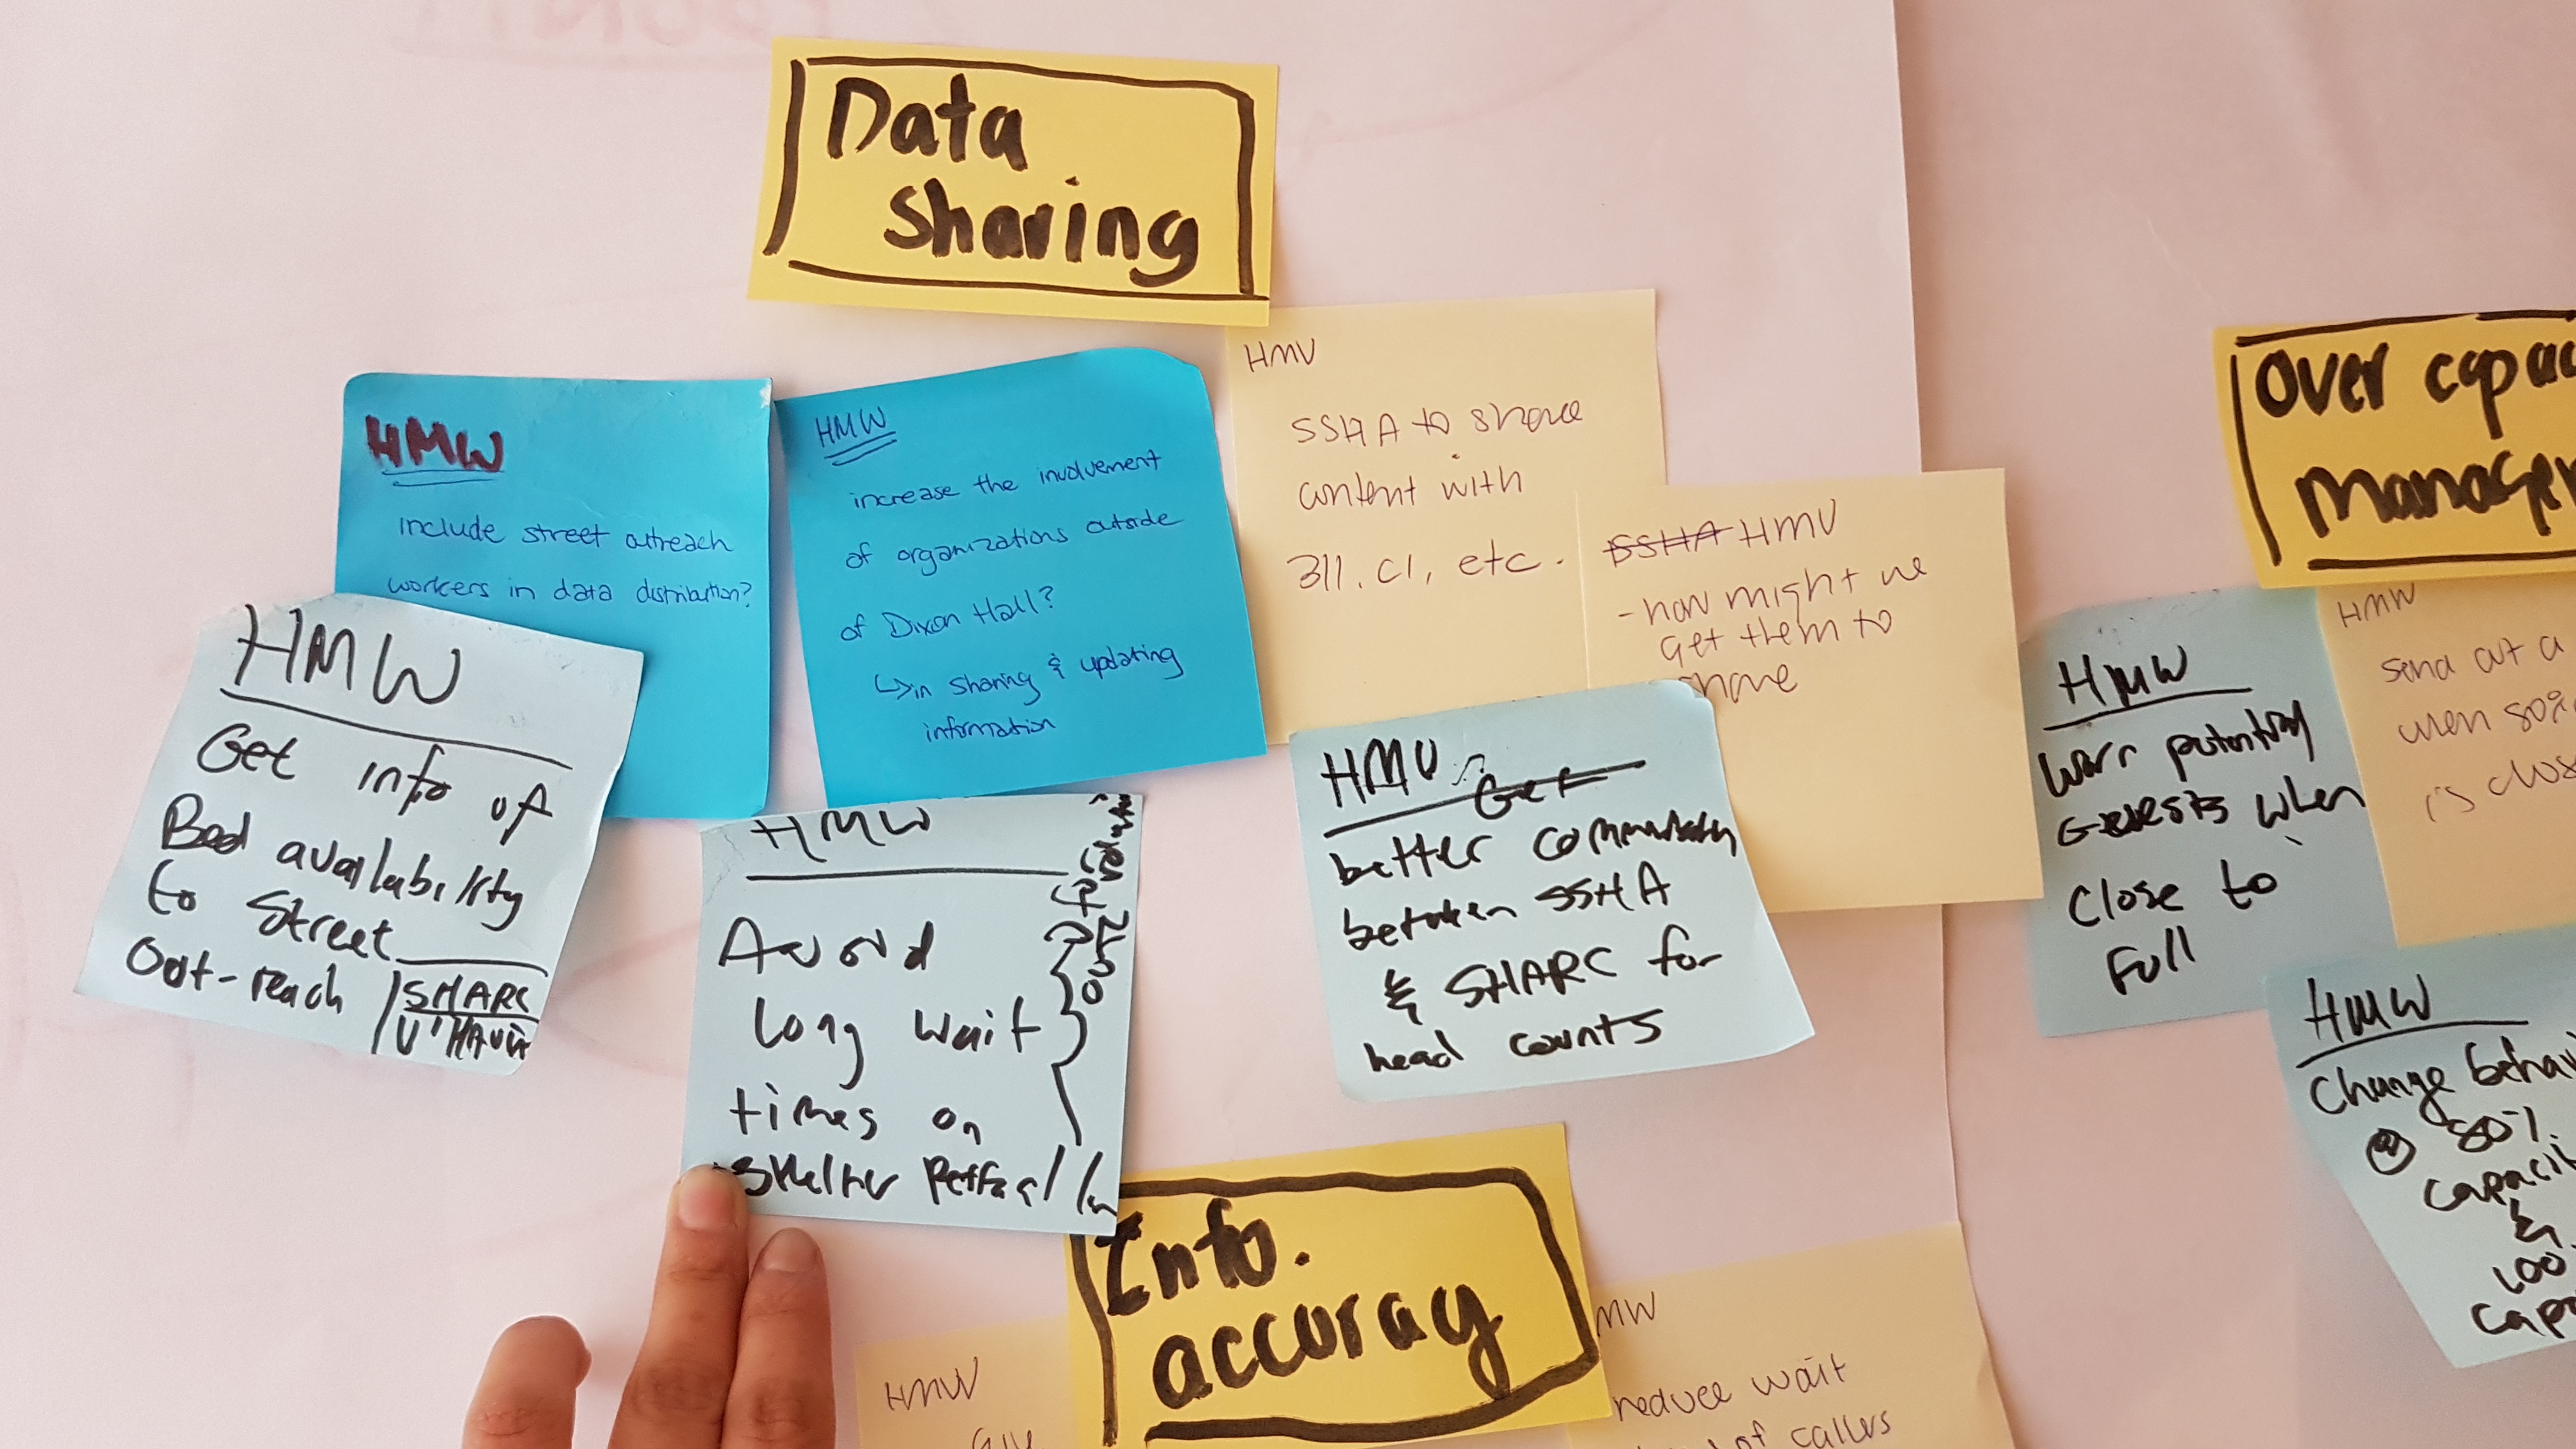 Data
sharing
HMW
include street outreach
workers in data distribution?
HMW
increase the involvement
of organizations outside
of Dixon Hall?
↳in sharing & updating
information
HMV
SSHA to share
content with
311, CI, etc.
SSHA HMV
-how might we
get them to
share
HMW
Get info of
Bed availability
to Street
Out-reach
SHARC
HMW
Avoid
long wait
times on
Shelter
HMV
Get
better
between SSHA
& SHARC for
head counts
Over capac
manage
HMW
Warn
Guests when
Close to
Full
HMW
send out a
when 80%
is close
HMW
Change behav
@ 80%
capacit
&
100
cap
Info.
accuracy
HMW
MW
reduce wait
of callers